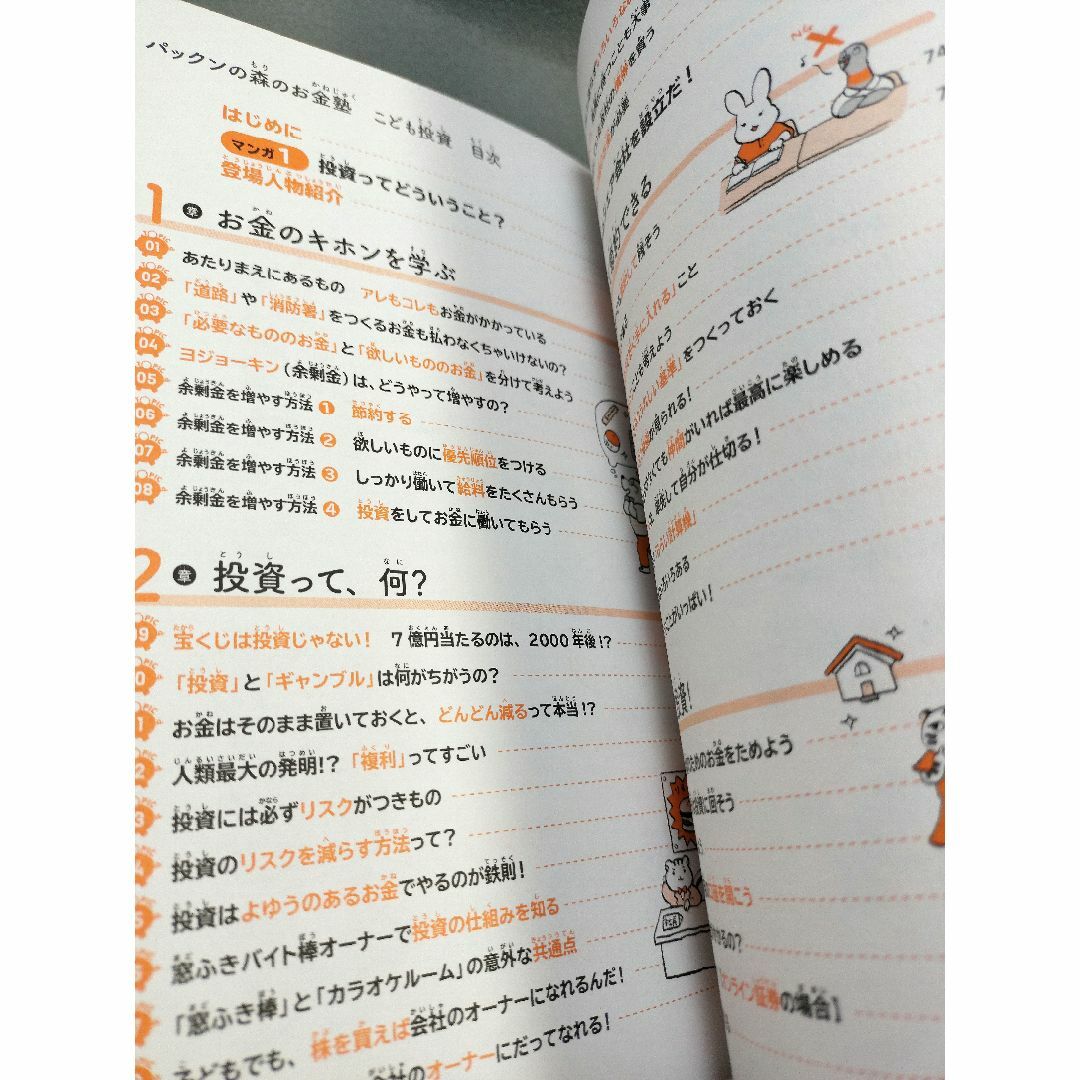 パックンの森のお金塾 こども投資 目次
はじめに
マンガ1 投資ってどういうこと?
登場人物紹介
1章 お金のキホンを学ぶ
TOPIC 01 あたりまえにあるもの アレもコレもお金がかかっている
TOPIC 02 「道路」や「消防署」をつくるお金も払わなくちゃいけないの?
TOPIC 03 「必要なもののお金」と「欲しいもののお金」を分けて考えよう
TOPIC 04 ヨジョーキン(余剰金)は、どうやって増やすの?
TOPIC 05 余剰金を増やす方法❶ 節約する
TOPIC 06 余剰金を増やす方法❷ 欲しいものに優先順位をつける
TOPIC 07 余剰金を増やす方法❸ しっかり働いて給料をたくさんもらう
TOPIC 08 余剰金を増やす方法❹ 投資をしてお金に働いてもらう
2章 投資って、何?
宝くじは投資じゃない! 7億円当たるのは、2000年後!?
「投資」と「ギャンブル」は何がちがうの?
お金はそのまま置いておくと、どんどん減るって本当!?
人類最大の発明!?「複利」ってすごい
投資には必ずリスクがつきもの
投資のリスクを減らす方法って?
投資はよゆうのあるお金でやるのが鉄則!
窓ふきバイト棒オーナーで投資の仕組みを知る
「窓ふき棒」と「カラオケルーム」の意外な共通点
こどもでも、株を買えば会社のオーナーになれるんだ!
のオーナーにだってなれる!
を買う
会社を設立だ!
74
できる
に入れる」こと
考えよう
をつくっておく
られる!
時間がいれば最高に楽しめる
して自分が仕切る!
計算機」
いろある
がいっぱい!
のためのお金をためよう
に回そう
を開こう
るの?
オンライン証券の場合】